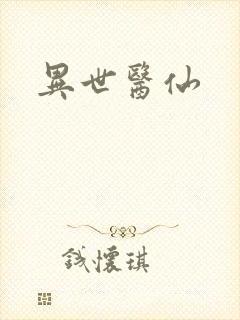 異世醫仙
钱懷琪